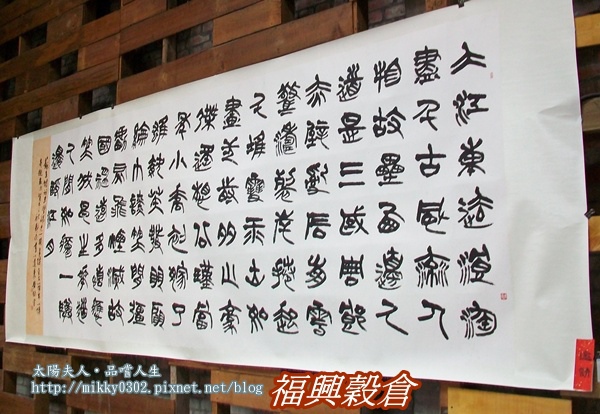 大江東去浪淘
盡千古風流人
物故壘西邊人
道是三國周郎
赤壁亂石崩雲
驚濤裂岸捲起
千堆雪江山如
畫一時多少豪
傑遙想公瑾當
年小喬初嫁了
雄姿英發羽扇
綸巾談笑間強
虜灰飛煙滅故
國神遊多情應
笑我早生華髮
人間如夢一樽
還酹江月
太陽夫人‧品嚐人生
http://mikky0302.pixnet.net/blog
福興穀倉